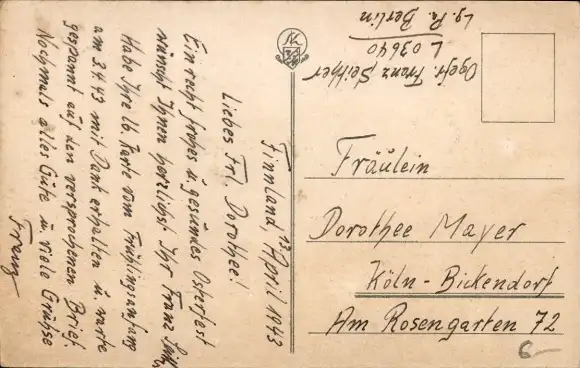 Finnland, 13. April 1943
Liebes Frl. Dorothee!
Ein recht frohes u. gesundes Osterfest
wünscht Ihnen herzlichst Ihr Franz
Habe Ihre lb. Karte vom Frühlingsanfang
am 3.4.43 mit Dank erhalten u. warte
gespannt auf den versprochenen Brief
Nochmals alles Gute u. viele Grüsse
Franz
Ogefr. Franz
L 03640
Lg. Pa. Berlin
Fräulein
Dorothee Mayer
Köln - Bickendorf
Am Rosengarten 72